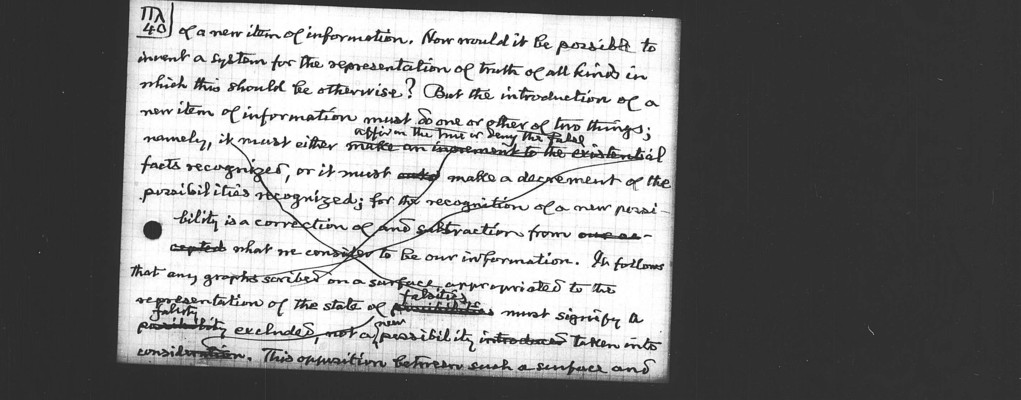 ΠΛ
40
of a new item of information. Now would it be possible to
invent a system for the representation of truth of all kinds in
which this should be otherwise? But the introduction of a
new item of information must do one or other of two things;
affirm the true or deny the false
namely, it must either make an increment to the existential
facts recognized, or it must make a decrement of the
possibilities recognized; for the recognition of a new possi-
bility is a correction of and subtraction from our ac-
cepted what we consider to be our information. It follows
that any graphs scribed on a surface appropriated to the
falsities
representation of the state of possibilities must signify a
falsity new
possibility excluded, not a possibility introduced taken into
consideration. This opposition between such a surface and